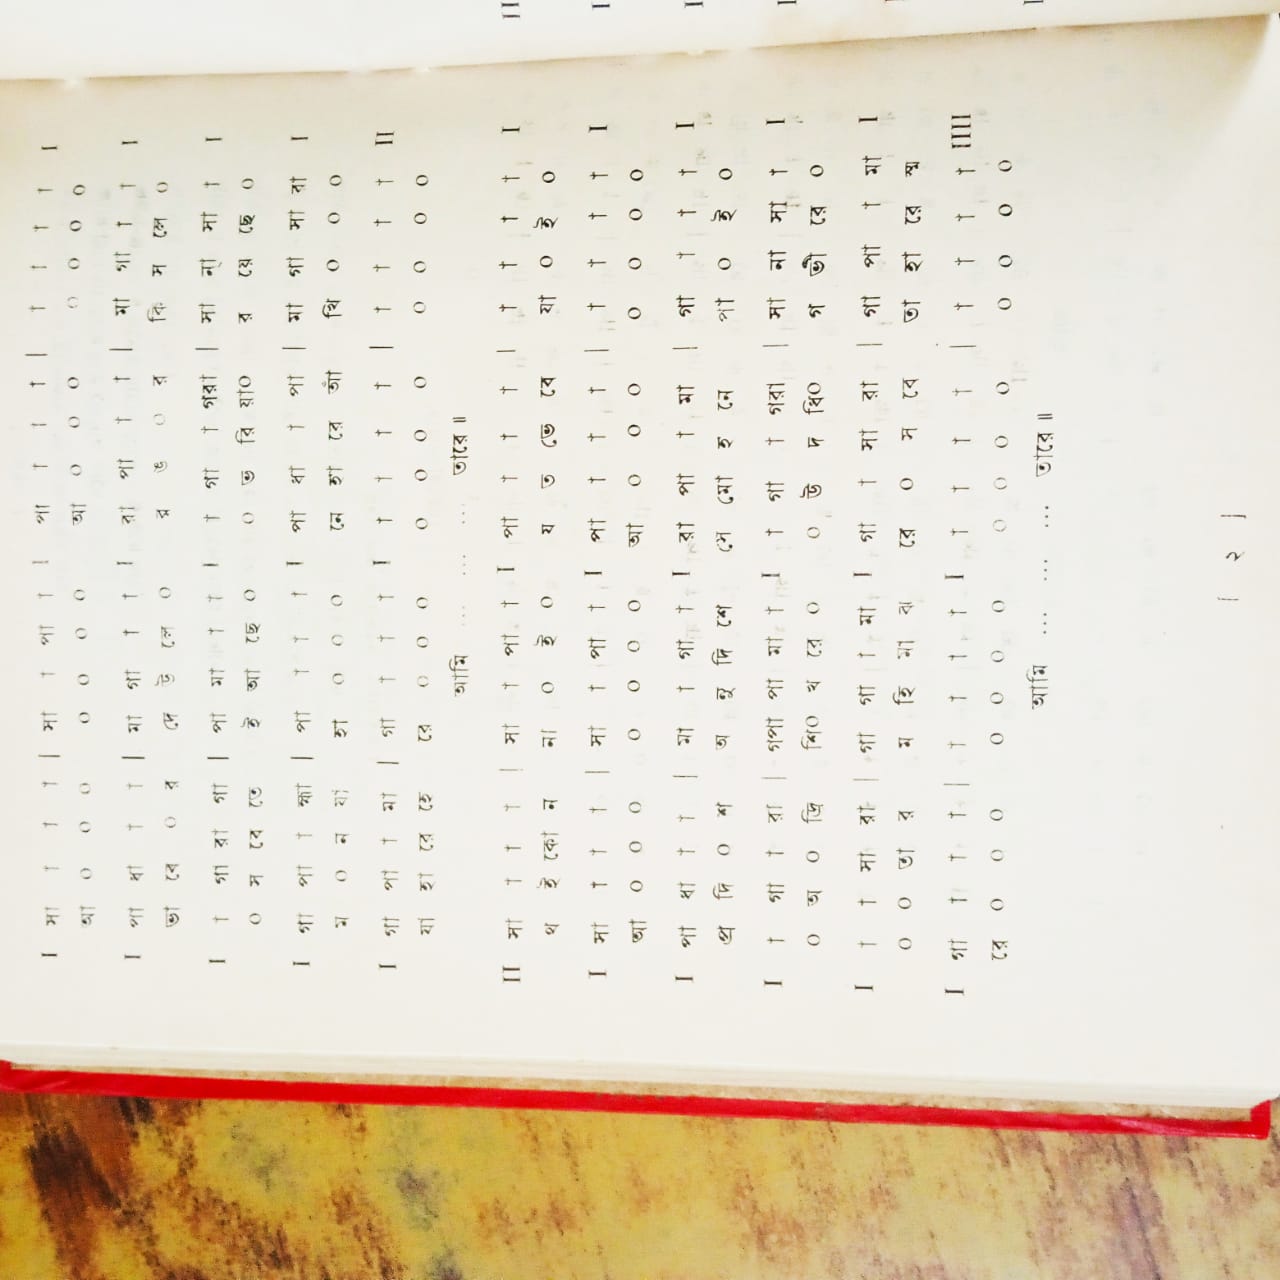 I সা া া া | সা া পা া I পা া া া | া া া া I
আ ০ ০ ০ ০ ০ ০ ০ আ ০ ০ ০ ০ ০ ০ ০
I পা ধা া া | মা গা া া I রা পা া া | মা গা া া I
ভা বে ০ র দে উ লে ০ র ঙ ০ র কি স লে ০
I া গা রা গা | পা মা া া I া গা া গরা | সা ন্া সা া I
০ স বে তে ই আ ছে ০ ০ ভ রি য়া০ র য়ে ছে ০
I গা পা া হ্মা | পা া া া I পা ধা া পা | মা গা সা রা I
ম ০ ন যা হা ০ ০ ০ নে হা রে আঁ খি ০ ০ ০
I গা পা া মা | গা া া া I া া া া | া া া া II
যা হা রে হে রে ০ ০ ০ ০ ০ ০ ০ ০ ০ ০ ০
আমি ... ... তারে॥
II সা া া া | সা া পা া I পা া া া | া া া া I
থ ই কো ন না ০ ই ০ য ত ভে বে যা ০ ই ০
I সা া া া | সা া পা া I পা া া া | া া া া I
আ ০ ০ ০ ০ ০ ০ ০ আ ০ ০ ০ ০ ০ ০ ০
I পা ধা া া | মা া গা া I রা পা া মা | গা া া া I
প্র দি ০ শ অ নু দি শে সে মো হ নে পা ০ ই ০
I া গা া রা | গপা পা মা া I া গা া গরা | সা না সা া I
০ অ ০ দ্রি শি০ খ রে ০ ০ উ দ ধি০ গ ভী রে ০
I া া সা রা | গা গা া মা I গা া সা রা | গা পা া মা I
০ ০ তা র ম হি মা ঝ রে ০ স বে তা হা রে স্ম
I গা া া া | া া া া I া া া া | া া া া IIII
রে ০ ০ ০ ০ ০ ০ ০ ০ ০ ০ ০ ০ ০ ০ ০
আমি ... ... ... তারে॥
| ২ |